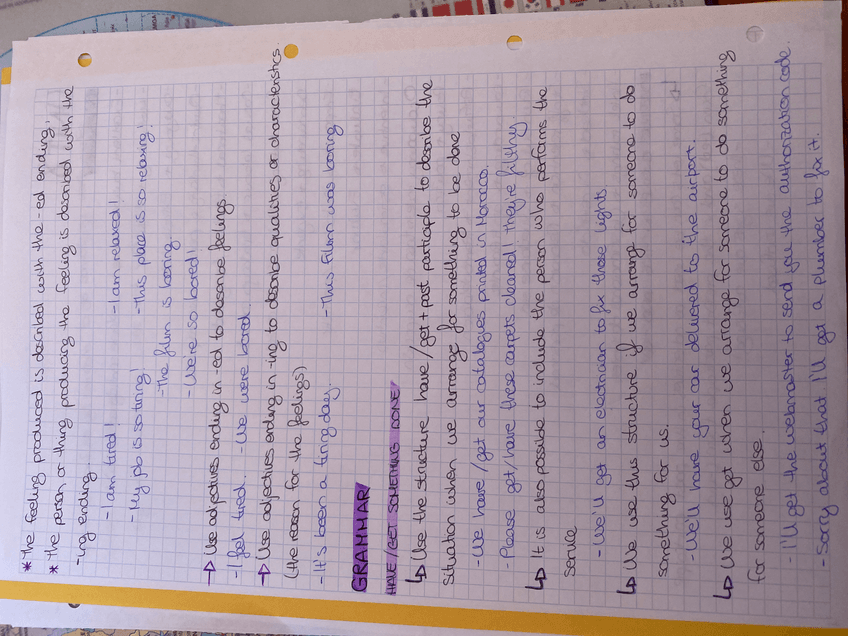 * The feeling produced is described with the -ed ending.
* The person or thing producing the feeling is described with the
-ing ending.
- I am tired! - I am relaxed!
- My job is so tiring! - This place is so relaxing!
- The film is boring.
- Were so bored!
→ Use adjectives ending in -ed to describe feelings.
- I feel tired. - We were bored.
→ Use adjectives ending in -ing to describe qualities or characteristics.
(the reason for the feelings)
- It's been a tiring day. - This film was boring
GRAMMAR
HAVE/GET SOMETHING DONE
↳ Use the structure have/get + past participle to describe the
situation when we arrange for something to be done
- We have/get our catalogues printed in Morocco.
- Please get/have these carpets cleaned! they're filthy
↳ It is also possible to include the person who performs the
service
- We'll get an electrician to fix those lights
↳ We use this structure if we arrange for someone to do
something for us.
- We'll have your car delivered to the airport.
↳ We use get when we arrange for someone to do something
for someone else.
- I'll get the webmaster to send you the authorization code.
- Sorry about that I'll get a plumber to fix it.